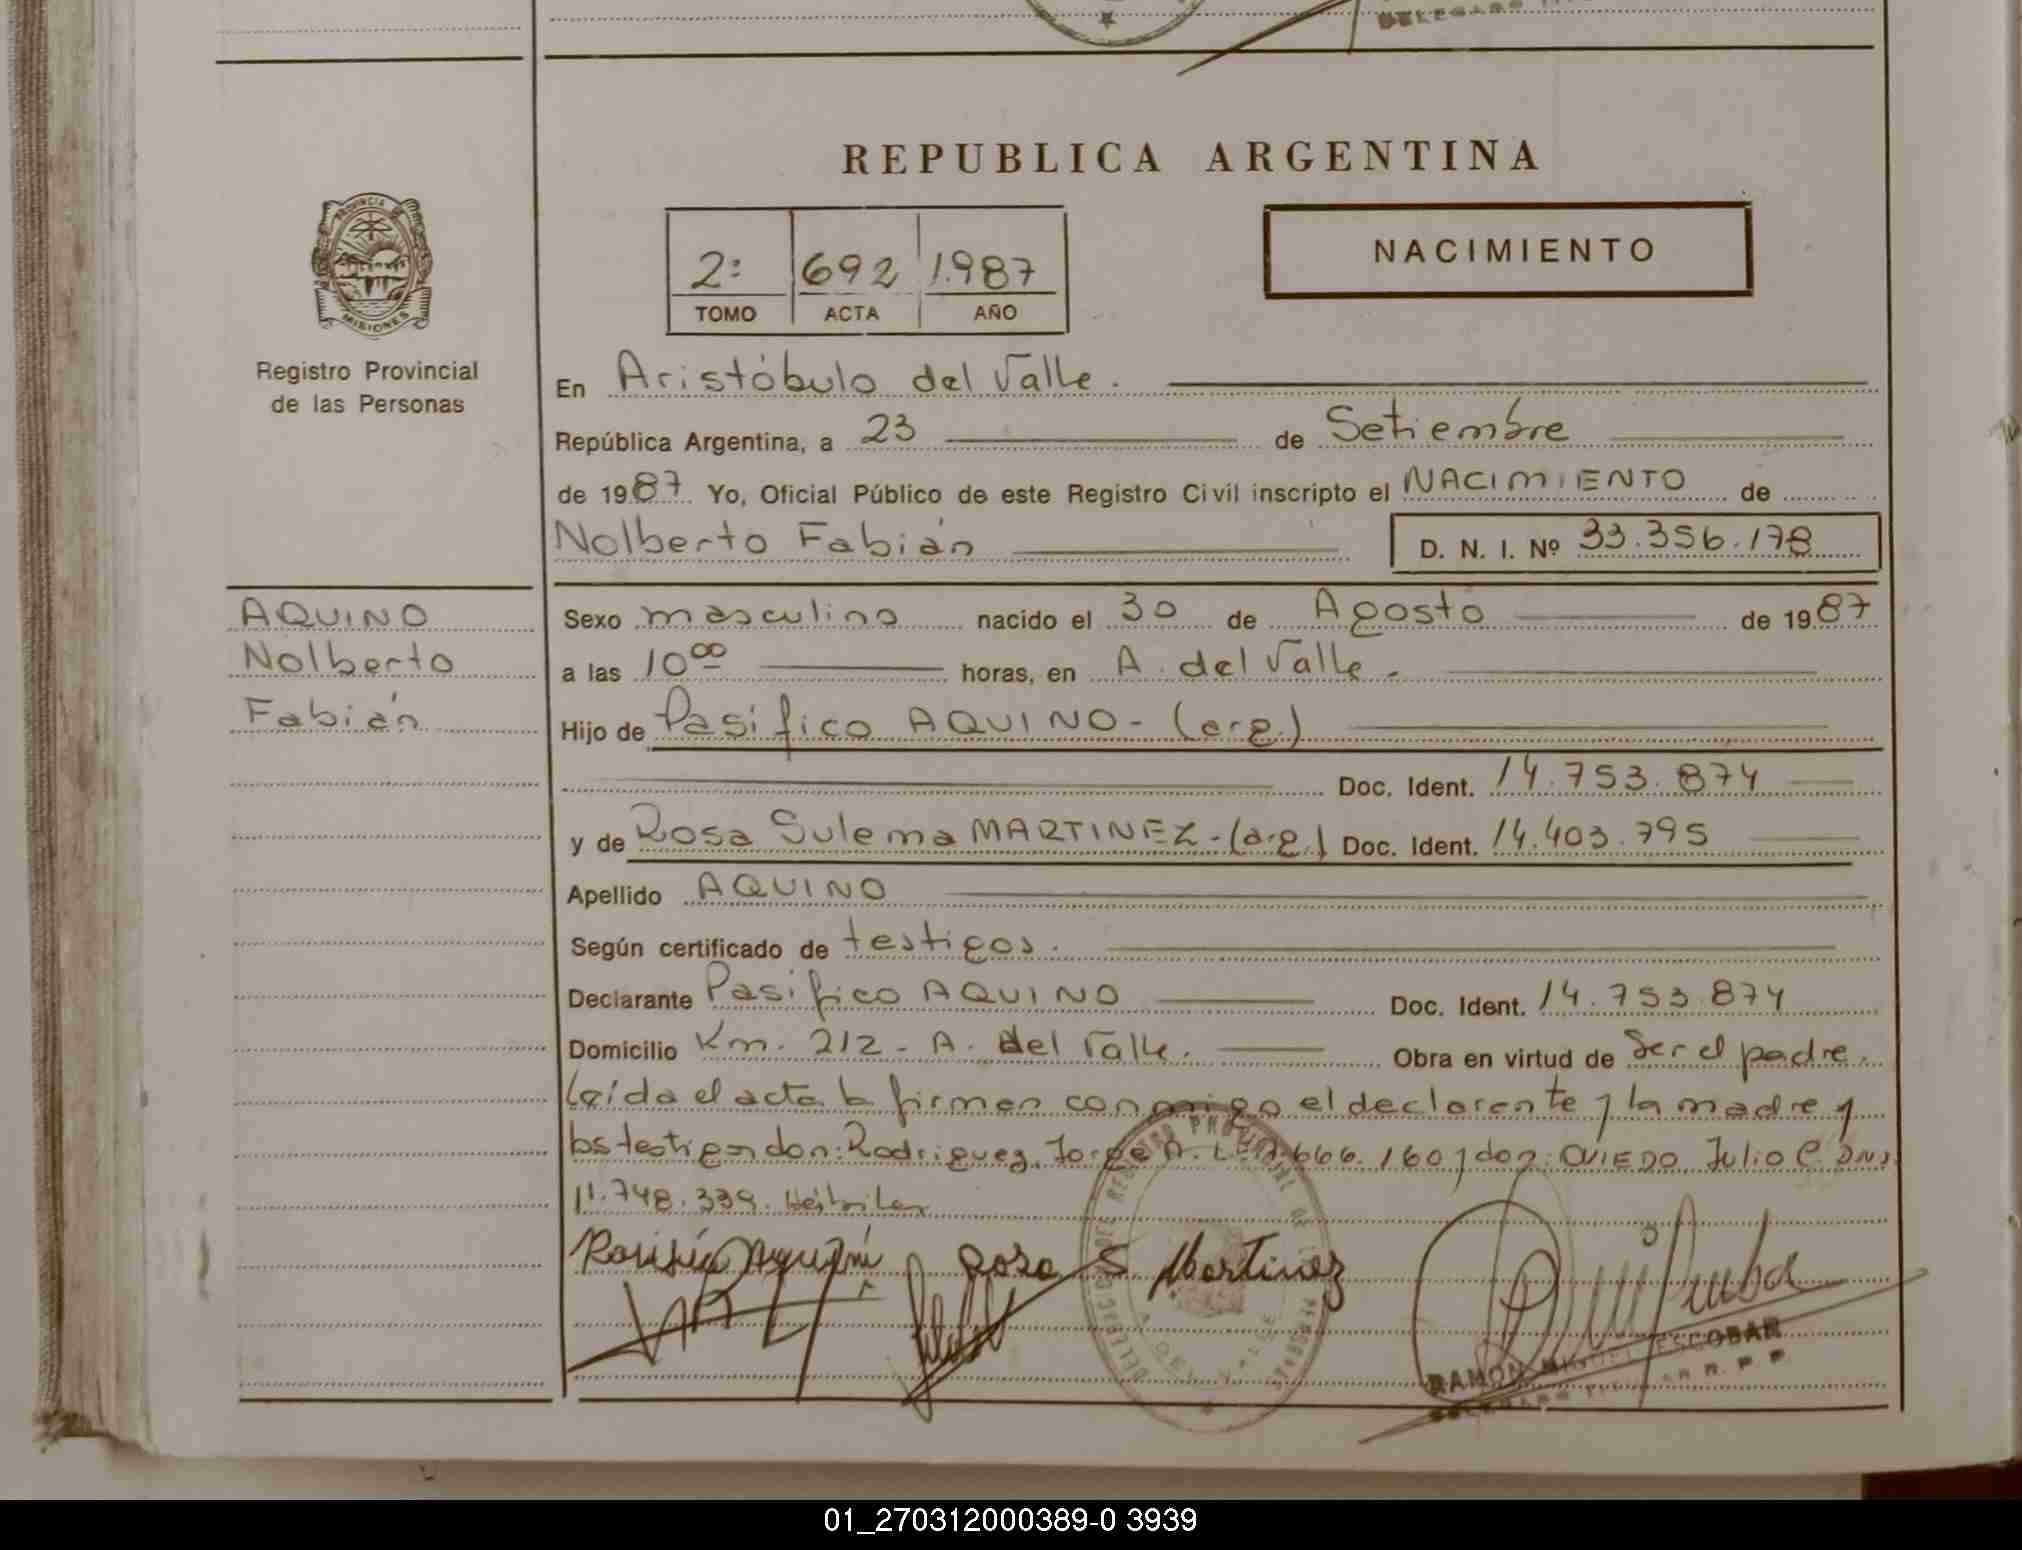 REPUBLICA ARGENTINA
PROVINCIA DE
MISIONES
Registro Provincial
de las Personas
2º 692 1.987
TOMO ACTA AÑO
NACIMIENTO
En Aristóbulo del Valle.
República Argentina, a 23 de Setiembre
de 1987 Yo, Oficial Público de este Registro Civil inscripto el NACIMIENTO de
Nolberto Fabián D. N. I. Nº 33.356.178
AQUINO
Nolberto
Fabián
Sexo masculino nacido el 30 de Agosto de 1987
a las 10 00 horas, en A. del Valle.
Hijo de Pasífico AQUINO - (arg.)
Doc. Ident. 14.753.874
y de Rosa Sulema MARTINEZ - (arg.) Doc. Ident. 14.403.795
Apellido AQUINO
Según certificado de testigos.
Declarante Pasifico AQUINO Doc. Ident. 14.753.874
Domicilio Km. 212 - A. del Valle. Obra en virtud de Ser el padre.
Leída el acta la firman conmigo el declarante y la madre y
los testigos don: Rodriguez, Jorge A. L.E. 666.160 y don: OVIEDO Julio C. DNI
11.748.339.
Rosa S Martinez
RAMON MIGUEL ESCOBAR
DELEGADO TITULAR R. P. P.
01_270312000389-0 3939